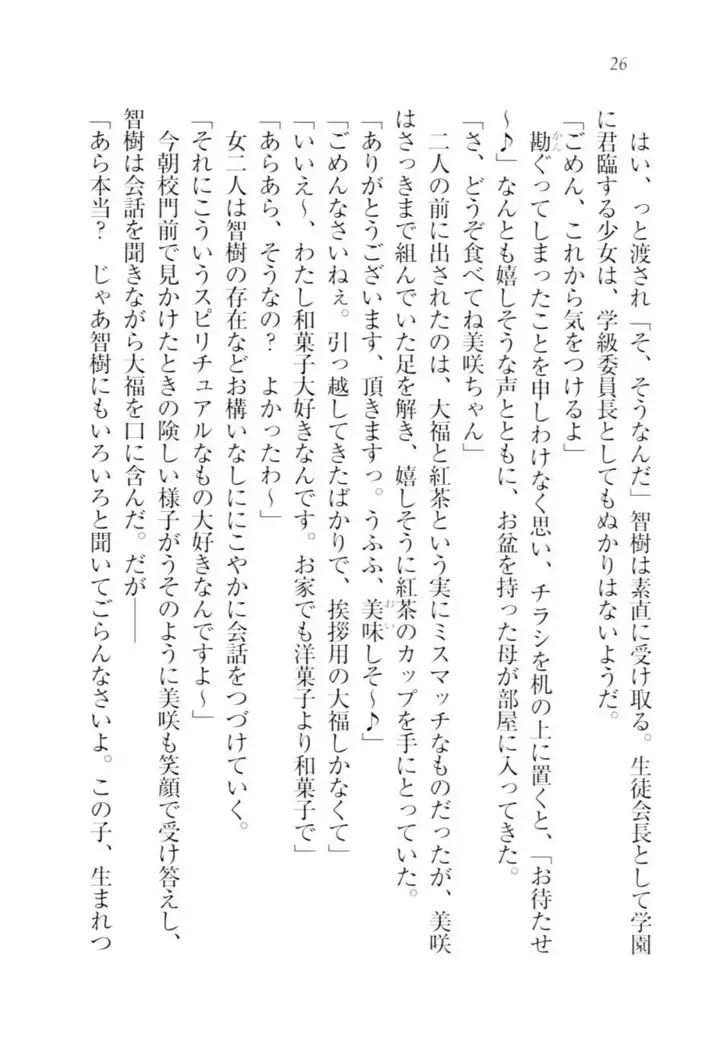 26
はい、っと渡され「そ、そうなんだ」智樹は素直に受け取る。生徒会長として学園
に君臨する少女は、学級委員長としてもぬかりはないようだ。
「ごめん、これから気をつけるよ」
勘ぐってしまったことを申しわけなく思い、チラシを机の上に置くと、「お待たせ
かん
〜♪」なんとも嬉しそうな声とともに、お盆を持った母が部屋に入ってきた。
「さ、どうぞ食べてね美咲ちゃん」
二人の前に出されたのは、大福と紅茶という実にミスマッチなものだったが、美咲
はさっきまで組んでいた足を解き、嬉しそうに紅茶のカップを手にとっていた。
「ありがとうございます、頂きますっ。うふふ、美味しそ〜♪」
おい
「ごめんなさいねぇ。引っ越してきたばかりで、挨拶用の大福しかなくて」
「いいえ〜、わたし和菓子大好きなんです。お家でも洋菓子より和菓子で」
「あらあら、そうなの？　よかったわ〜」
女二人は智樹の存在などお構いなしににこやかに会話をつづけていく。
「それにこういうスピリチュアルなもの大好きなんですよ〜」
今朝校門前で見かけたときの険しい様子がうそのように美咲も笑顔で受け答えし、
智樹は会話を聞きながら大福を口に含んだ。だが――
「あら本当？　じゃあ智樹にもいろいろと聞いてごらんなさいよ。この子、生まれつ